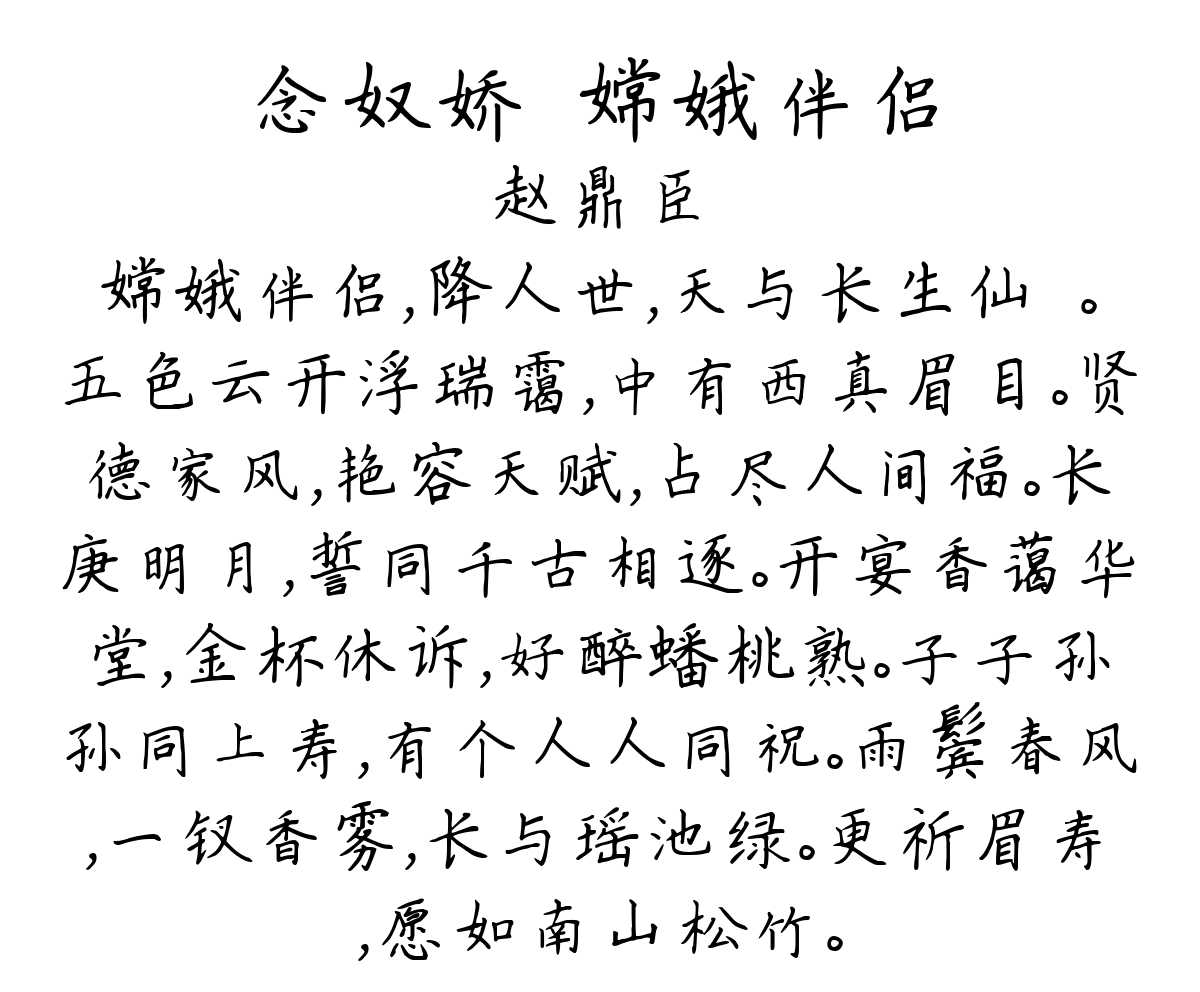 念奴娇 嫦娥伴侣
赵鼎臣
嫦娥伴侣,降人世,天与长生仙 。
五色云开浮瑞霭,中有西真眉目。贤
德家风,艳容天赋,占尽人间福。长
庚明月,誓同千古相逐。开宴香蔼华
堂,金杯休诉,好醉蟠桃熟。子子孙
孙同上寿,有个人人同祝。雨鬓春风
,一钗香雾,长与瑶池绿。更祈眉寿
,愿如南山松竹。